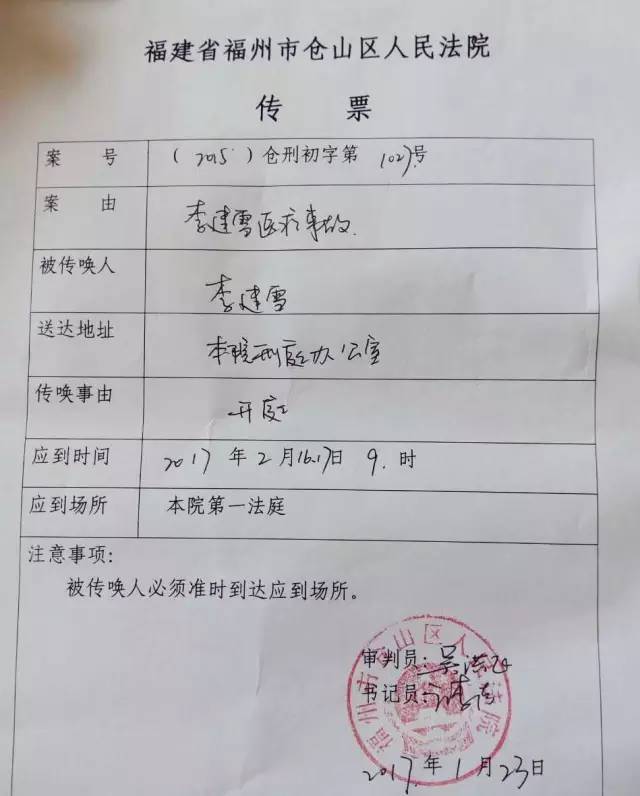 福建省福州市仓山区人民法院
传 票
案 号 (2015)仓刑初字第 1027号
案 由 李建雪医疗事故
被传唤人 李建雪
送达地址 本院刑庭办公室
传唤事由 开庭
应到时间 2017年2月16.17日9.时
应到场所 本院第一法庭
注意事项：
被传唤人必须准时到达应到场所。
审判员：吴
书记员：
福州市仓山区人民法院
2017年1月23日